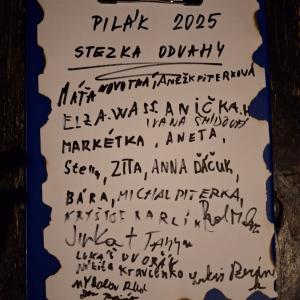 PILÁK 2025
STEZKA ODVAHY
MÁŤA NOVOTNÁ, ANEŽK PITERKOVÁ
ELZA. WASS ANIČKA.H
IVANA
MARKÉTKA, ANETA,
Stella, ZITA, ANNA ĎÁČUK,
BÁRA, MICHAL PITERKA,
KRYŠTOF KARLÍK
Jirka +
LUKÁŠ DVOŘÁK
Nikita Kravčenko